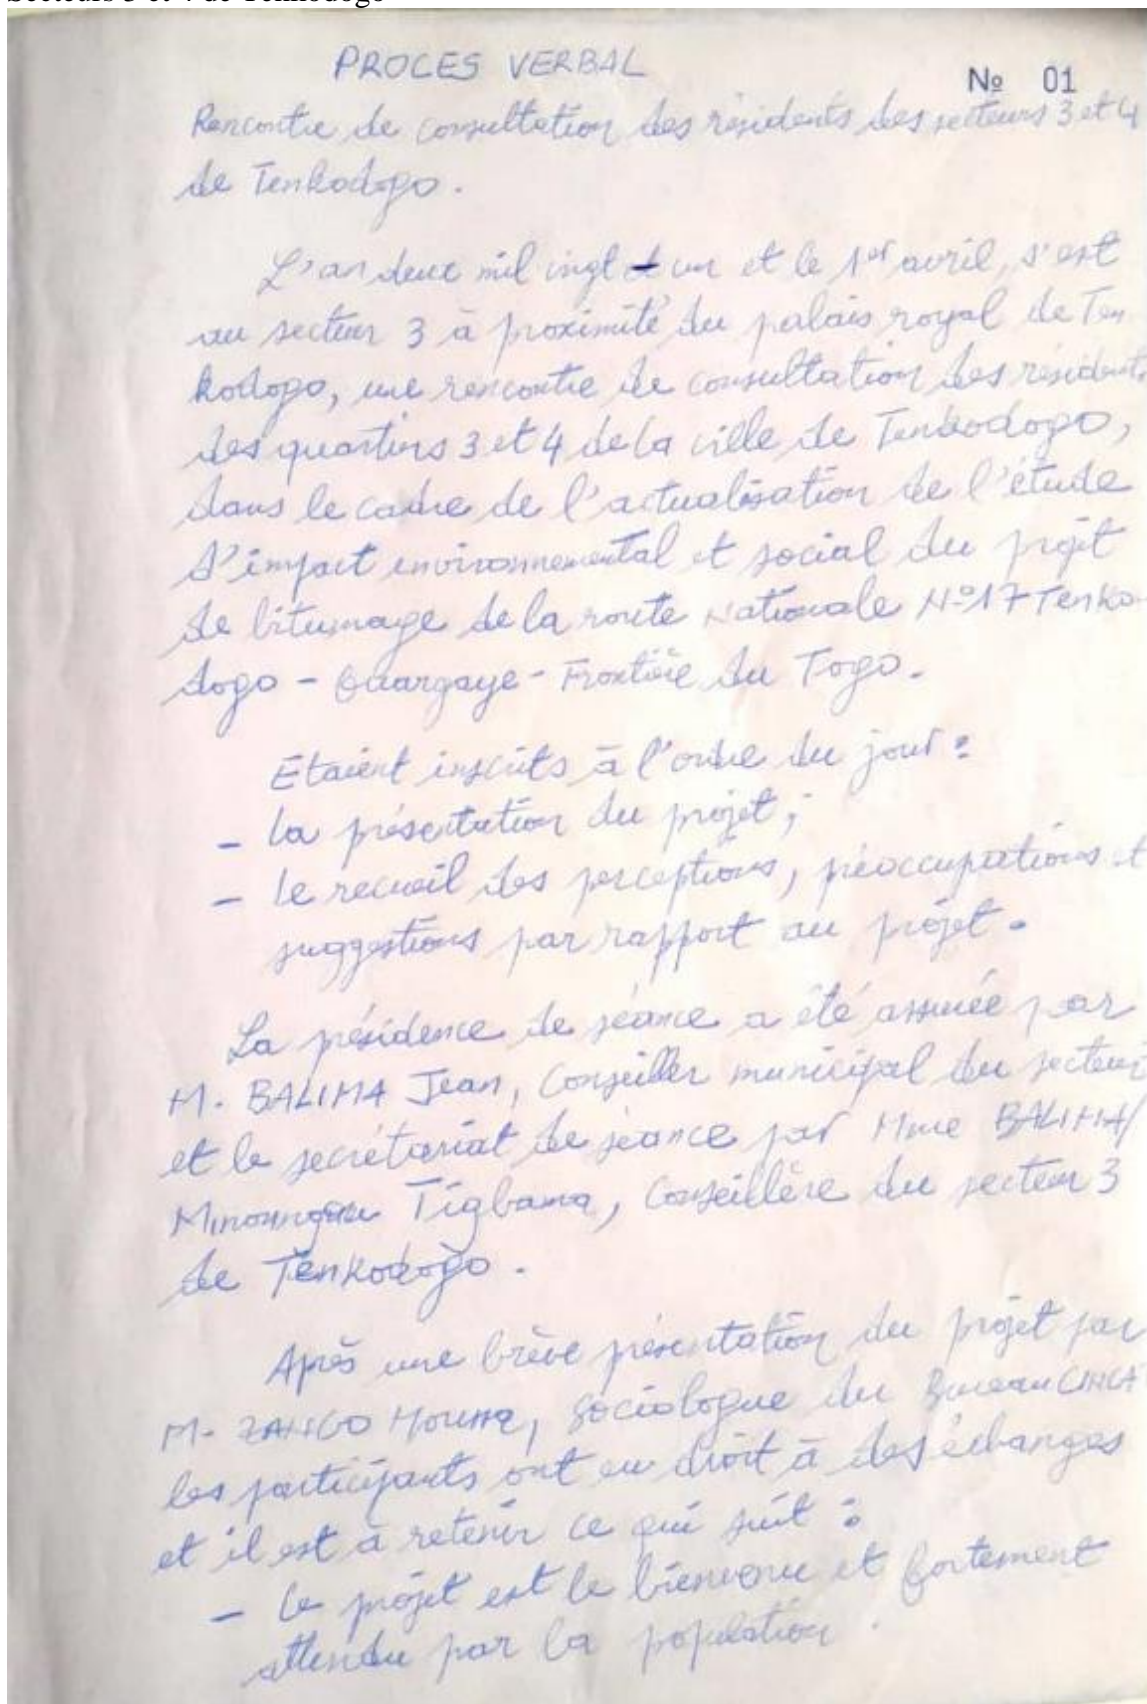 Secteurs 3 et 4 de Tenkodogo
PROCES VERBAL
№ 01
Rencontre de consultation des résidents des secteurs 3 et 4
de Tenkodogo.
L'an deux mil vingt et un et le 1er avril, s'est
au secteur 3 à proximité du palais royal de Ten
kodogo, une rencontre de consultation des résidents
des quartiers 3 et 4 de la ville de Tenkodogo,
dans le cadre de l'actualisation de l'étude
d'impact environnemental et social du projet
de bitumage de la route Nationale N°17 Tenko-
dogo - Ouargaye - Frontière du Togo.
Etaient inscrits à l'ordre du jour :
- la présentation du projet ;
- le recueil des perceptions, préoccupations et
suggestions par rapport au projet.
La présidence de séance a été assurée par
M. BALIMA Jean, Conseiller municipal du secteur
et le secrétariat de séance par Mme BALIMA/
Tigbama, Conseillère du secteur 3
de Tenkodogo.
Après une brève présentation du projet par
M. ZANGO, Sociologue du Bureau
les participants ont eu droit à des échanges
et il est à retenir ce qui suit :
- Le projet est le bienvenu et fortement
attendu par la population.